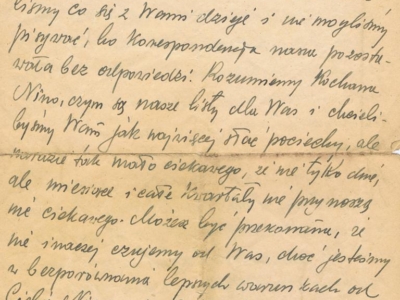 liśmy co się z Wami dzieje i nie mogliśmy
pisywać, bo korespondencja nasza pozosta-
wała bez odpowiedzi. Rozumiemy Kochana
Nino, czym są nasze listy dla Was i chcieli-
byśmy Wam jak najwięcej słać pociechy, ale
narazie tak mało ciekawego, że nie tylko dnie,
ale miesiące i całe kwartały nie przynoszą
nic ciekawego. Możesz być przekonana, że
nie inaczej czujemy od Was, choć jesteśmy
w bezporównania lepszych warunkach od